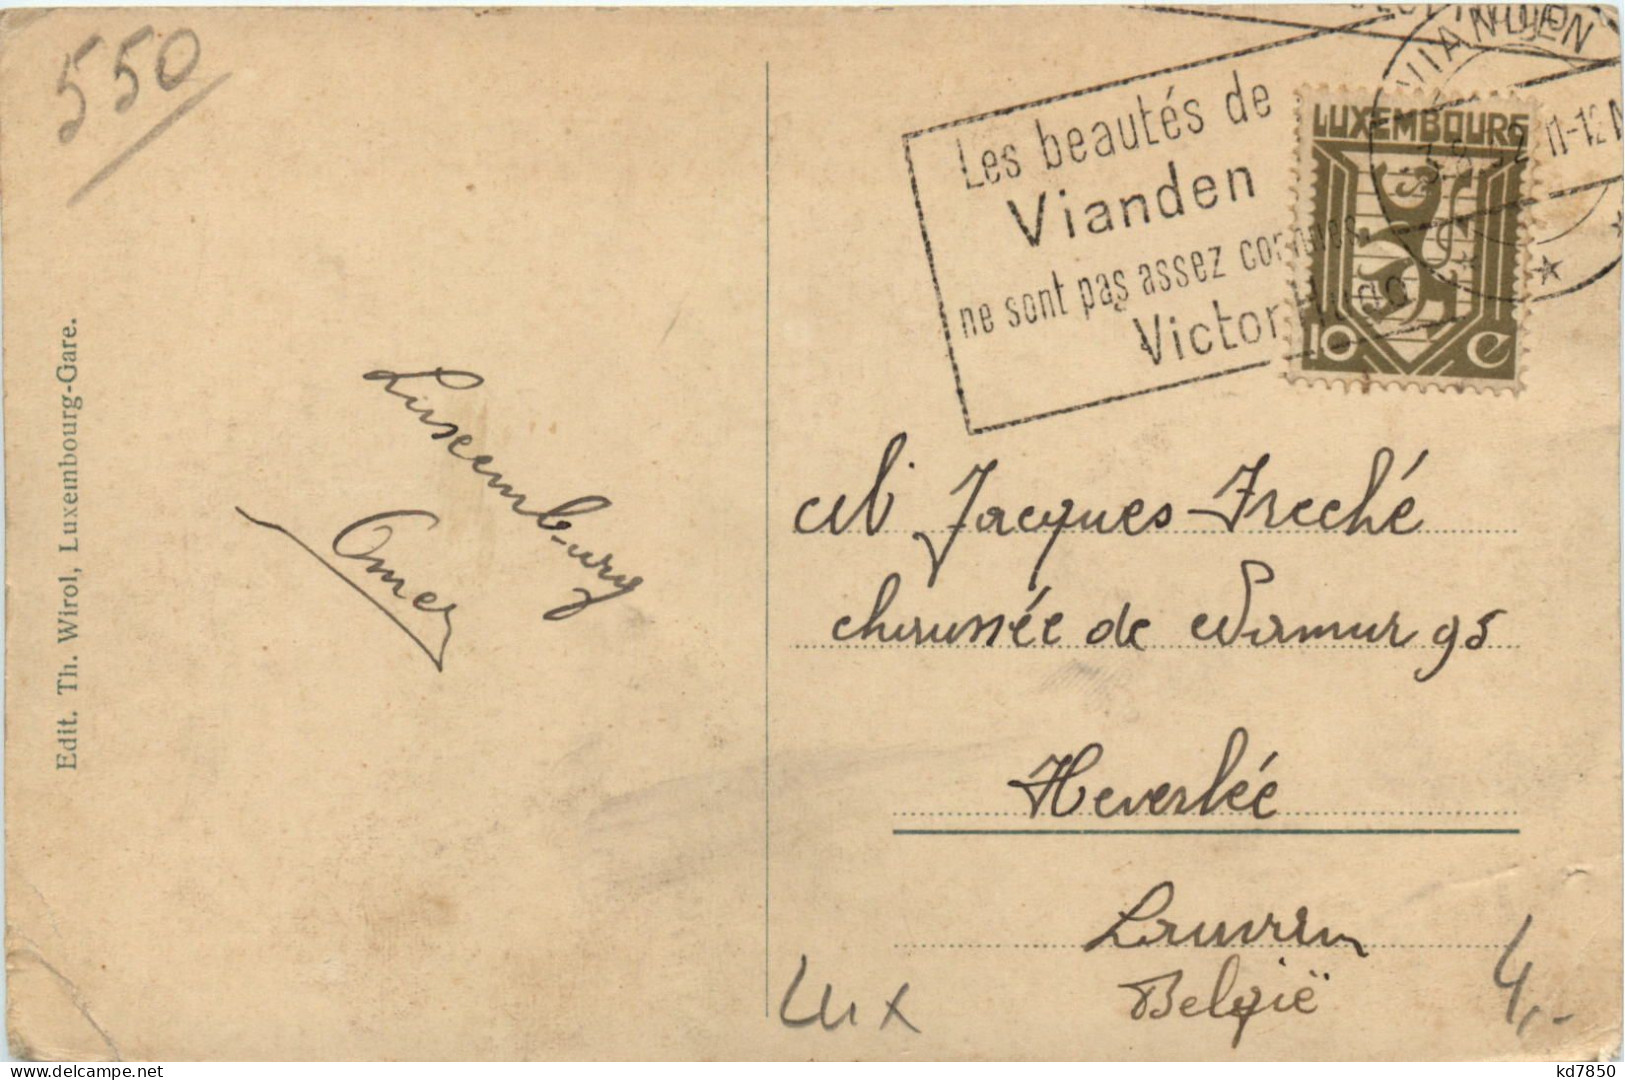 550
Les beautés de
Vianden
ne sont pas assez connues
Victor Hugo
VIANDEN
11-12
LUXEMBOURG
10 c
Edit. Th. Wirol, Luxembourg-Gare.
Luxembourg
Omer
M Jacques Freché
chaussée de Namur 95
Heverlée
Louvain
België
Lux
4,-
kd7850